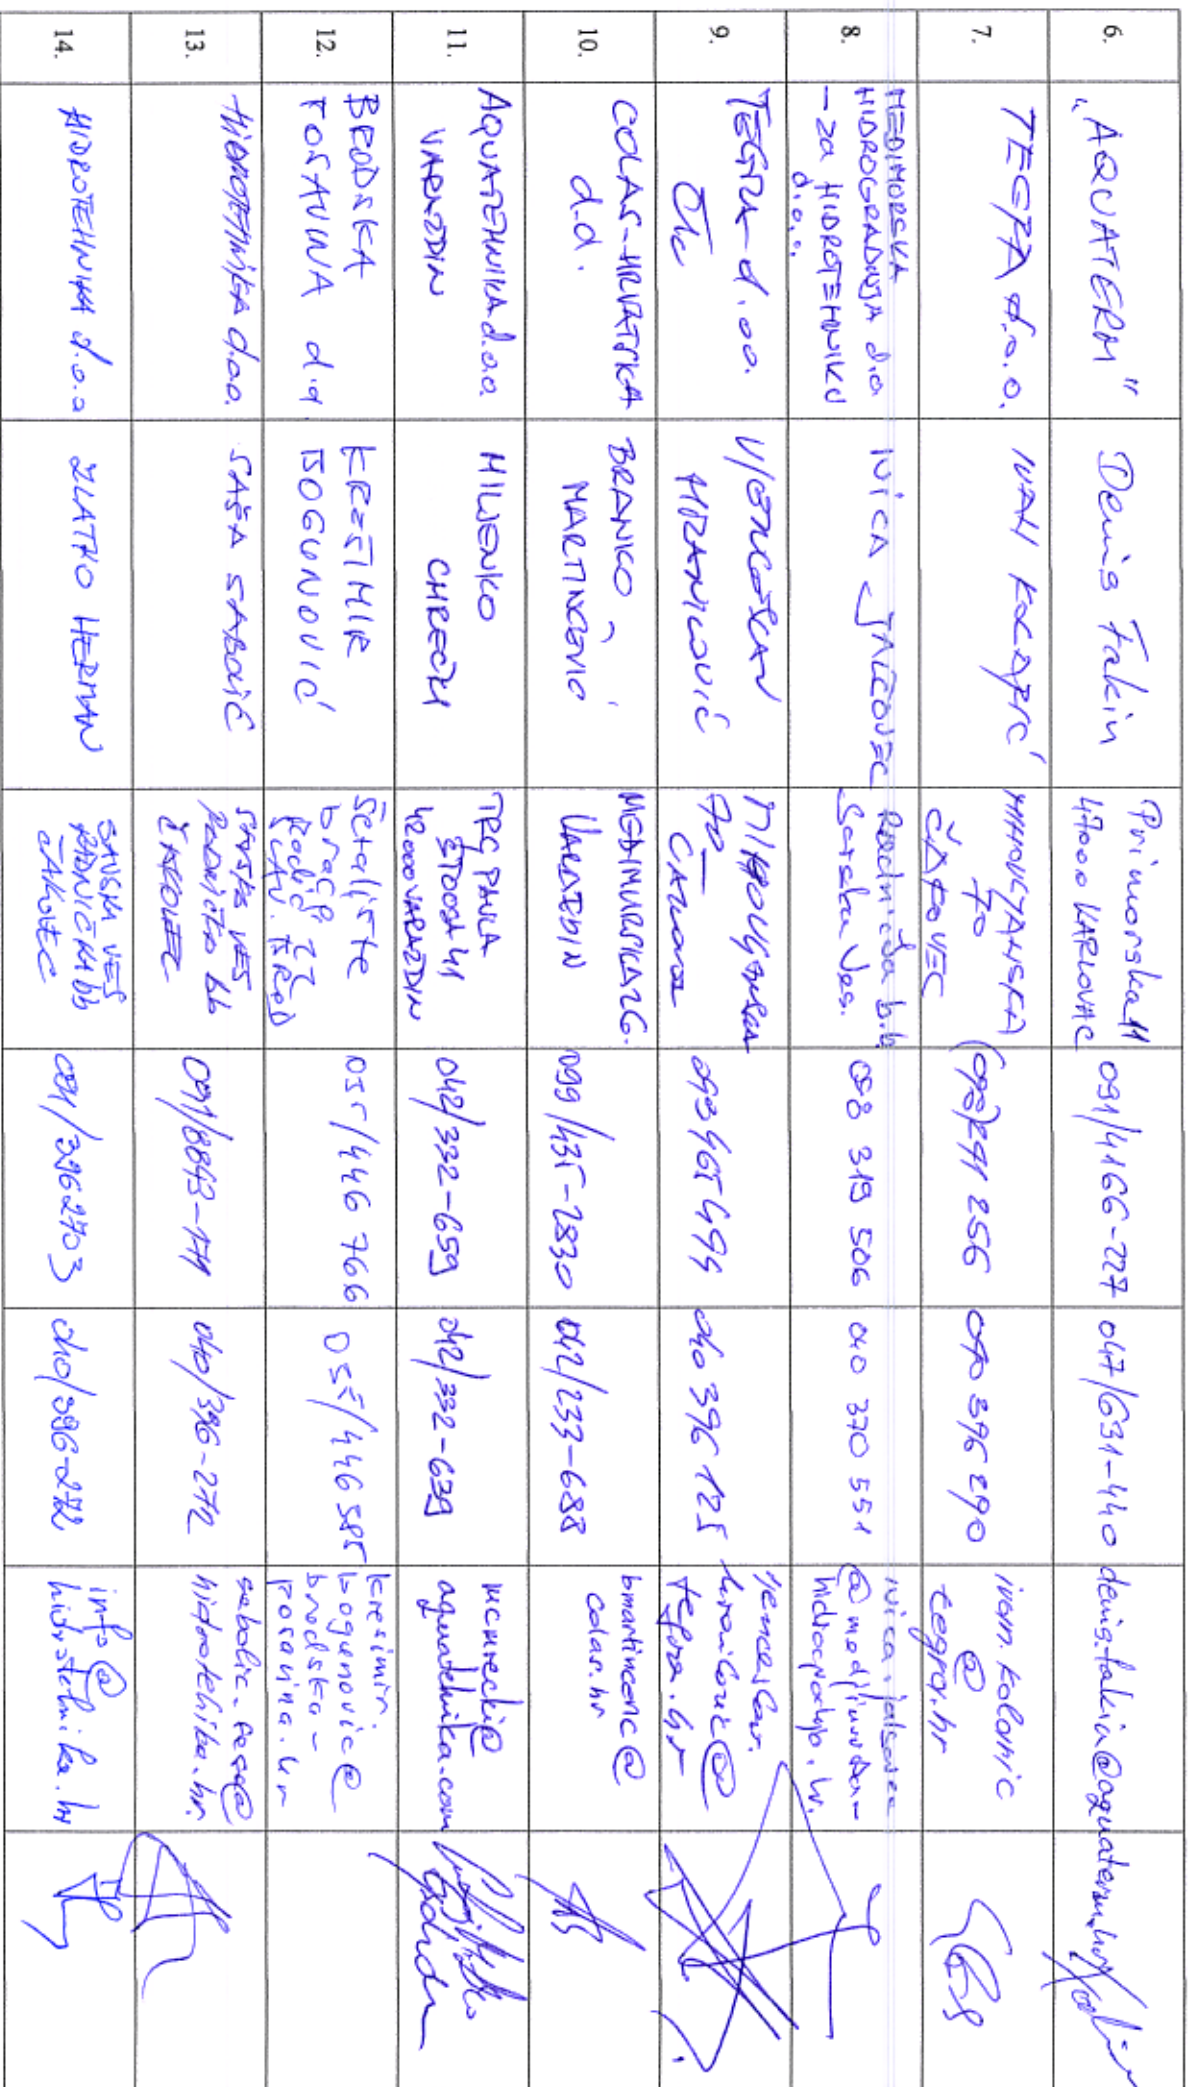 6.
„AQUATERM”
Denis Fakin
Primorska 11
47000 KARLOVAC
091/4166-227
047/631-440
denis.fakin@aquaterm.hr
7.
TEGRA d.o.o.
IVAN KOLARIĆ
MIHOVLJANSKA
70
ČAKOVEC
(098)241 256
040 396 290
ivan.kolaric
@
tegra.hr
8.
MEĐIMURSKA
HIDROGRADNJA d.o.o
- za HIDROTEHNIKU
d.o.o.
IVICA JALŠOVEC
Radnička b.b.
Savska Ves.
098 319 506
040 370 551
ivica.jalsovec
@medjimurska-
hidrogradnja.hr.
9.
TEGRA d.o.o.
MIHOVLJANSKA
70
099 465 494
040 396 125
@
tegra.hr
10.
COLAS-HRVATSKA
d.d.
BRANKO
MARTINČEVIĆ
MEĐIMURSKA 26.
VARAŽDIN
099/435-2830
042/233-688
bmartincevic@
colas.hr
11.
AQUATEHNIKA d.o.o.
VARAŽDIN
MILJENKO
CMREČKI
TRG PAVLA
ŠTOOSA 41
42000 VARAŽDIN
042/332-659
042/332-639
mcmrecki@
aquatehnika.com
12.
BRODSKA
POSAVINA d.d.
KREŠIMIR
BOGUNOVIĆ
Šetalište
braće
Radić 22
SLAV. BROD
035/446 766
035/446 585
kresimir.
bogunovic@
brodska-
posavina.hr
13.
HIDROTEHNIKA d.o.o.
SAŠA SABOLIĆ
SAVSKA VES
RADNIČKA bb
ČAKOVEC
091/8843-171
040/396-272
sabolic.sasa@
hidrotehnika.hr.
14.
HIDROTEHNIKA d.o.o
ZLATKO HERMAN
SAVSKA VES
RADNIČKA bb
ČAKOVEC
091/3962703
040/396-272
info@
hidrotehnika.hr